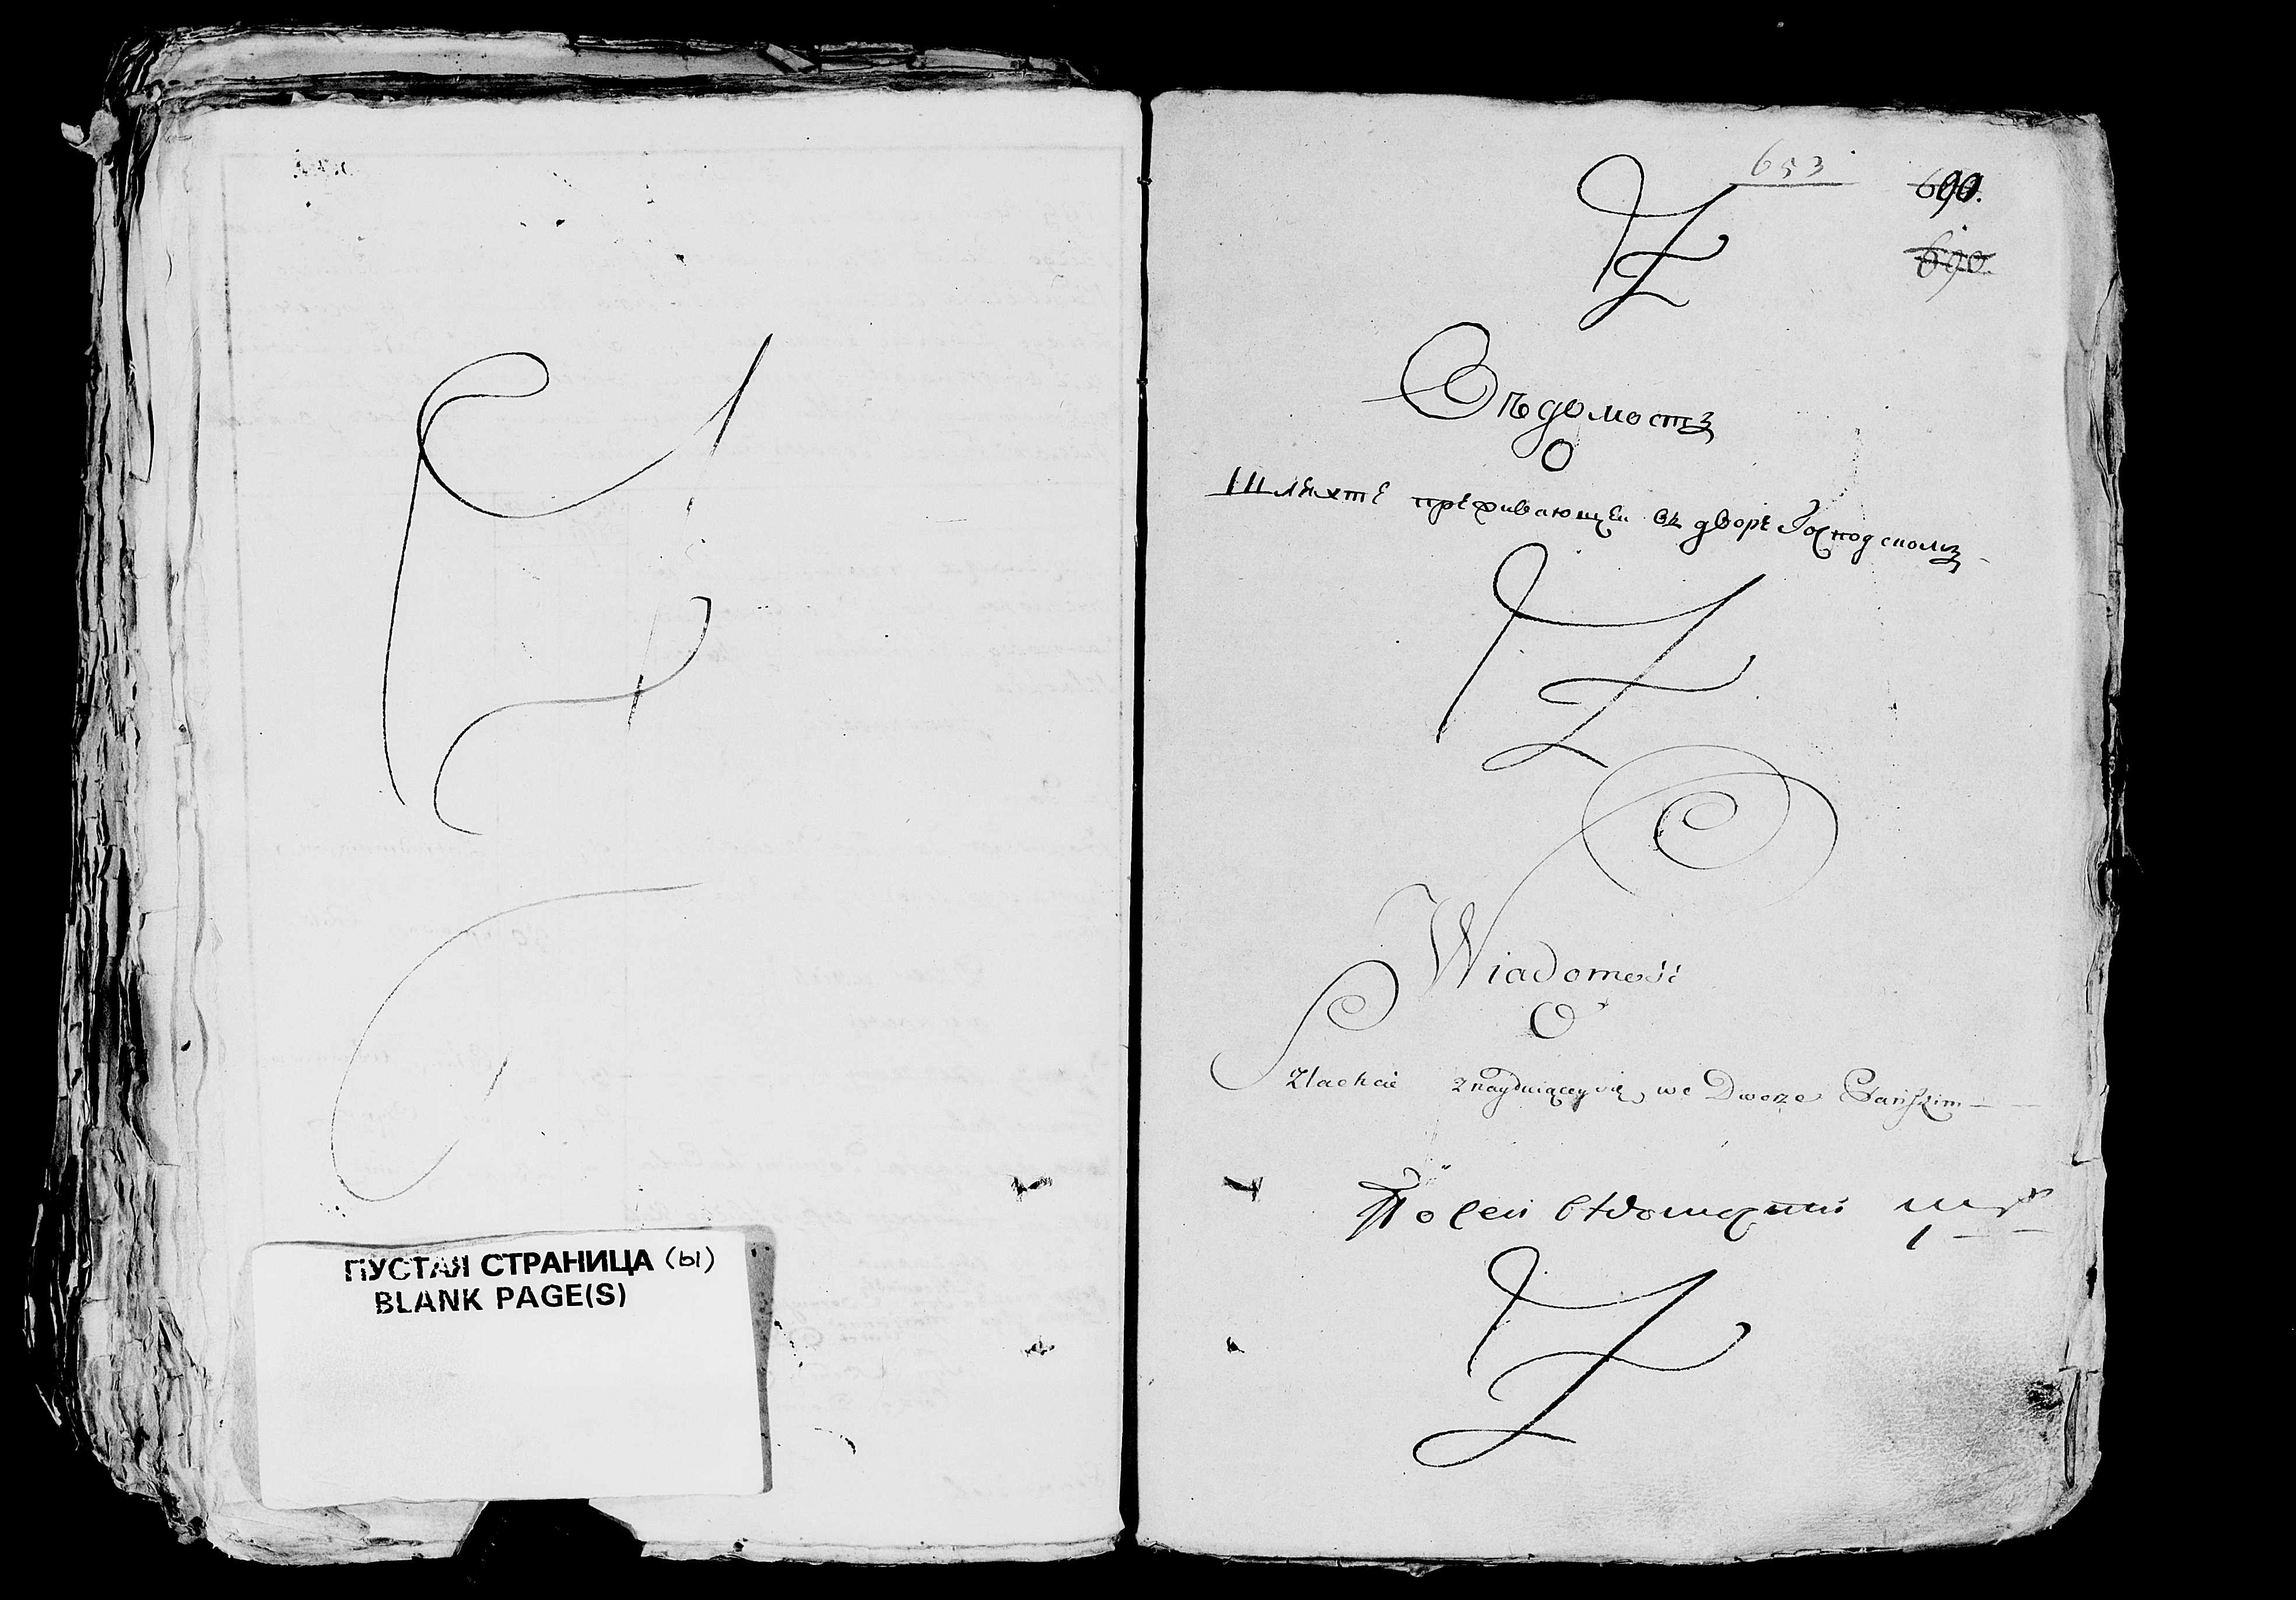 ПУСТАЯ СТРАНИЦА (ы)
BLANK PAGE(S)
653
690.
690.
Вѣдомостъ
О
Шляхте преживающеи въ дворе Господскомъ
Wiadomość
O
Szlachcie znayduiącey się we Dworze Pańskim
По сеи вѣдомости